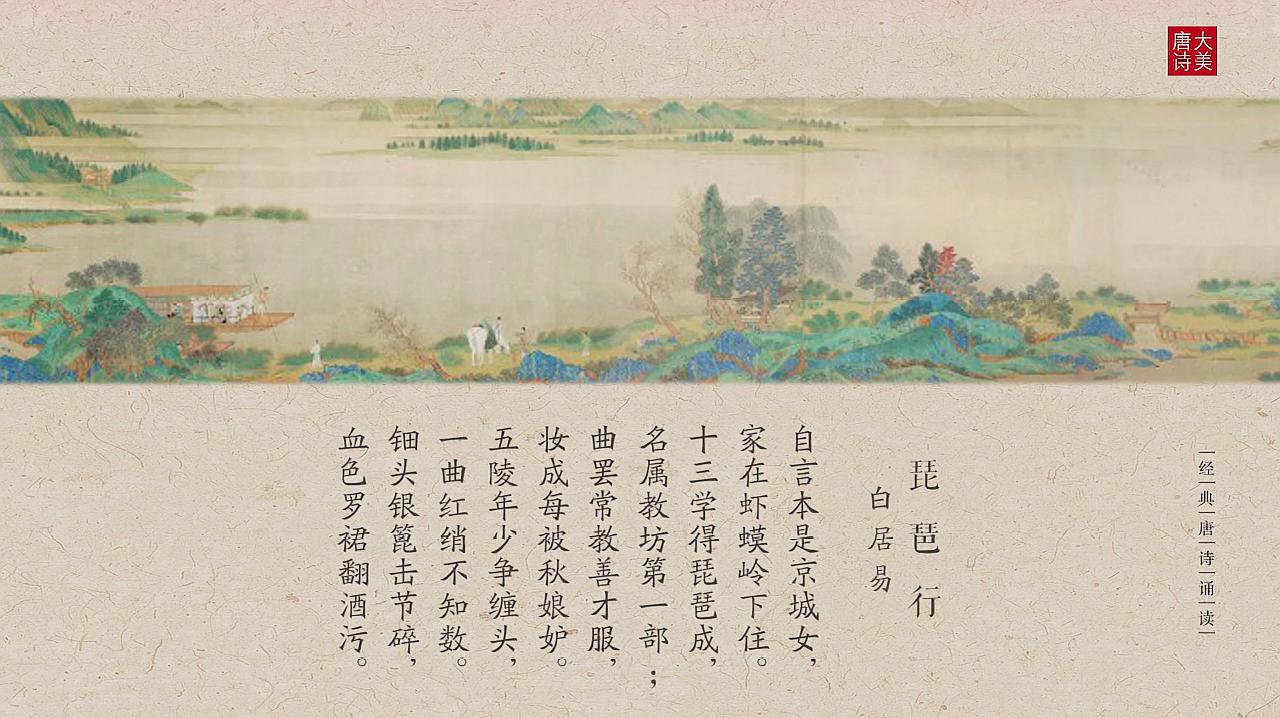 大美
唐诗
经典唐诗诵读
琵琶行
白居易
自言本是京城女，
家在虾蟆岭下住。
十三学得琵琶成，
名属教坊第一部；
曲罢常教善才服，
妆成每被秋娘妒。
五陵年少争缠头，
一曲红绡不知数。
钿头银篦击节碎，
血色罗裙翻酒污。